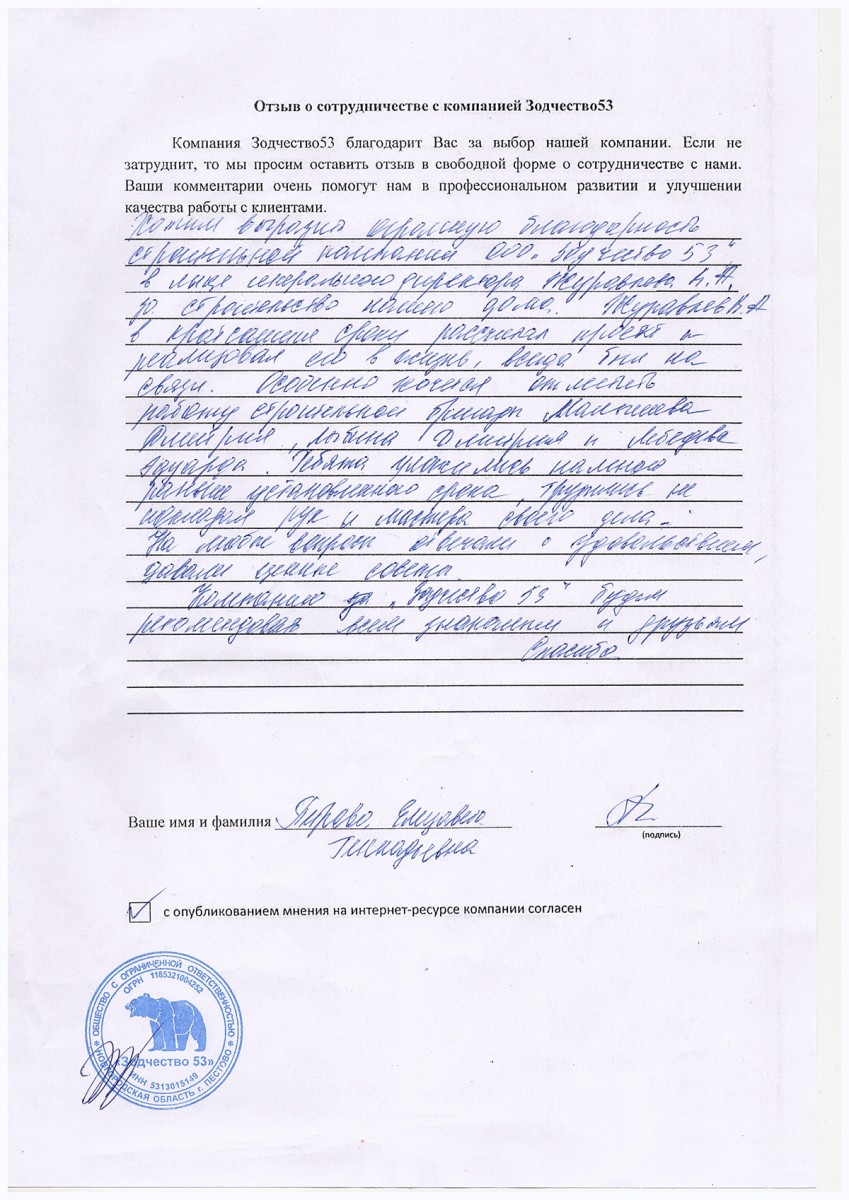 Отзыв о сотрудничестве с компанией Зодчество53
Компания Зодчество53 благодарит Вас за выбор нашей компании. Если не
затруднит, то мы просим оставить отзыв в свободной форме о сотрудничестве с нами.
Ваши комментарии очень помогут нам в профессиональном развитии и улучшении
качества работы с клиентами.
Хотим выразить огромную благодарность
строительной компании ООО „Зодчество 53",
в лице генерального директора Журавлева А.
за строительство нашего дома. Журавлев
в кратчайшие сроки рассчитал проект и
реализовал его в жизнь, всегда был на
связи. Особенно хочется отметить
работу строительной бригады Малышева
Дмитрия, Дмитрия и Лебедева
Эдуарда. Ребята уложились намного
раньше установленного срока, трудились не
покладая рук и мастера своего дела.
На любые вопросы отвечали с удовольствием,
давали ценные советы.
Компанию „Зодчество 53" будем
рекомендовать всем знакомым и друзьям
Спасибо.
Ваше имя и фамилия Елизавета
Геннадьевна
(подпись)
с опубликованием мнения на интернет-ресурсе компании согласен
ОБЩЕСТВО С ОГРАНИЧЕННОЙ ОТВЕТСТВЕННОСТЬЮ
ОГРН 1185321004252
«Зодчество 53»
ИНН 5313015149
НОВГОРОДСКАЯ ОБЛАСТЬ г. ПЕСТОВО